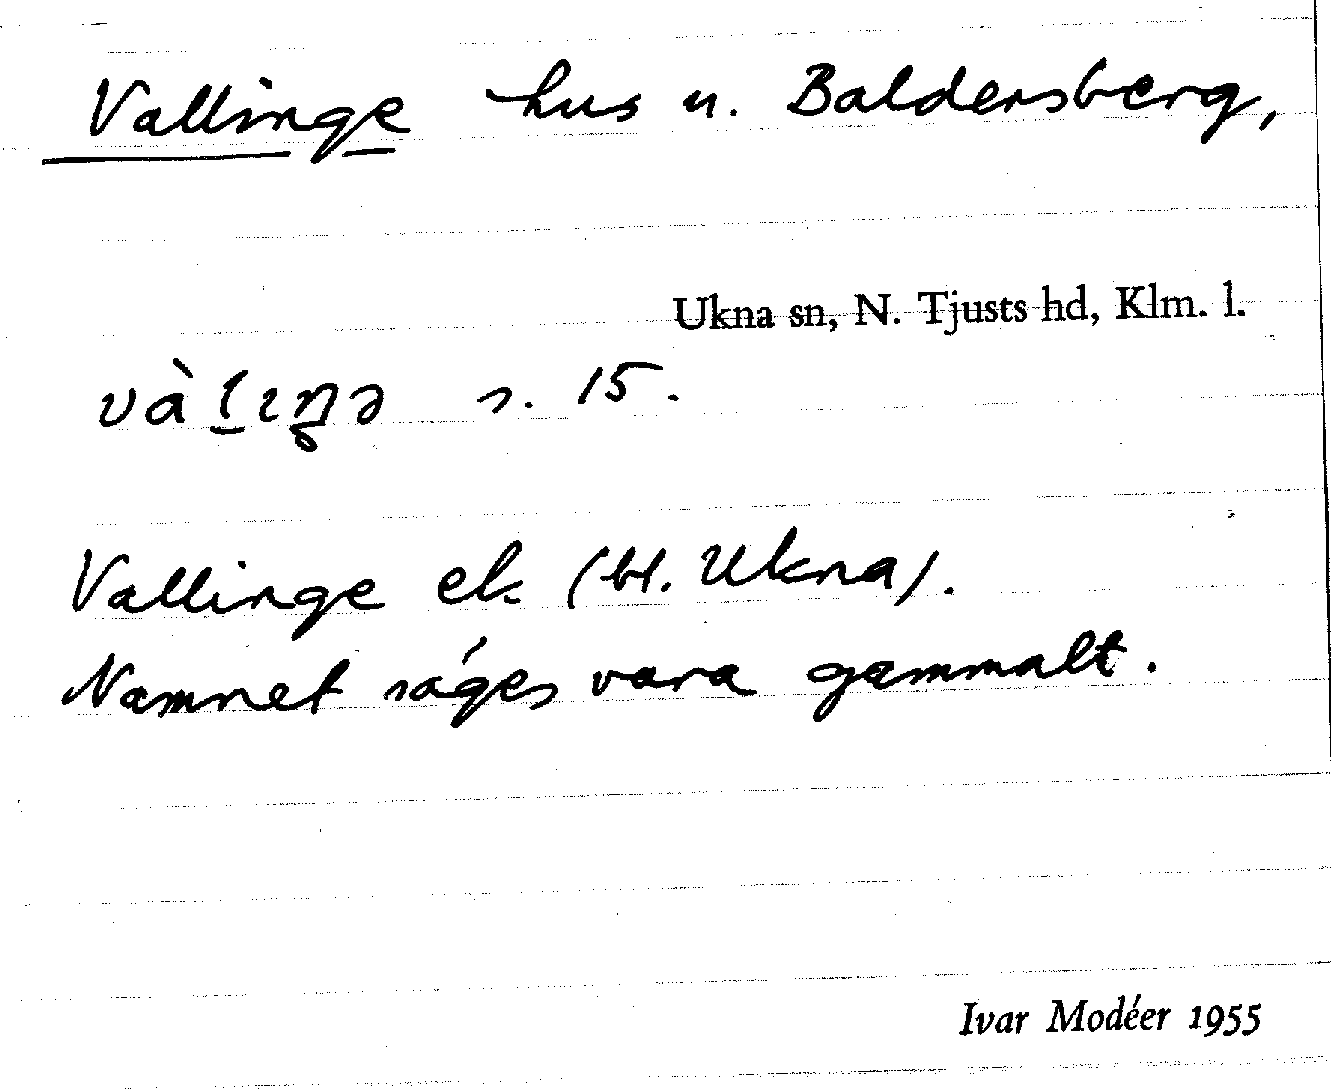 Vallinge hus u. Baldersberg,
Ukna sn, N. Tjusts hd, Klm. l.
s. 15.
Vallinge ek. (bl. Ukna).
Namnet säges vara gammalt.
Ivar Modéer 1955